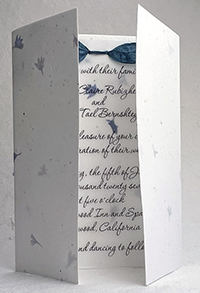 with their fami
Claire Rubighe
and
Tael Bernshtey
leasure of your c
ration of their we
y, the fifth of J
usand twenty se
t five o'clock
wood Inn and Spa
wood, California
and dancing to follo